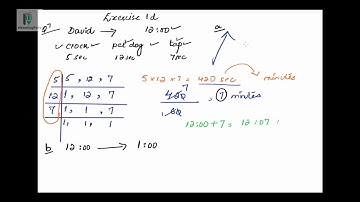 Exercise 1d
Q7 David → 12:00 a
clock pet dog tap
5 sec 12 sec 7 sec
5 | 5, 12, 7
12 | 1, 12, 7
7 | 1, 1, 7
1, 1, 1
5 x 12 x 7 = 420 sec → minutes
420 7
60 , 7 minutes
12:00 + 7 = 12:07
b 12:00 → 1:00